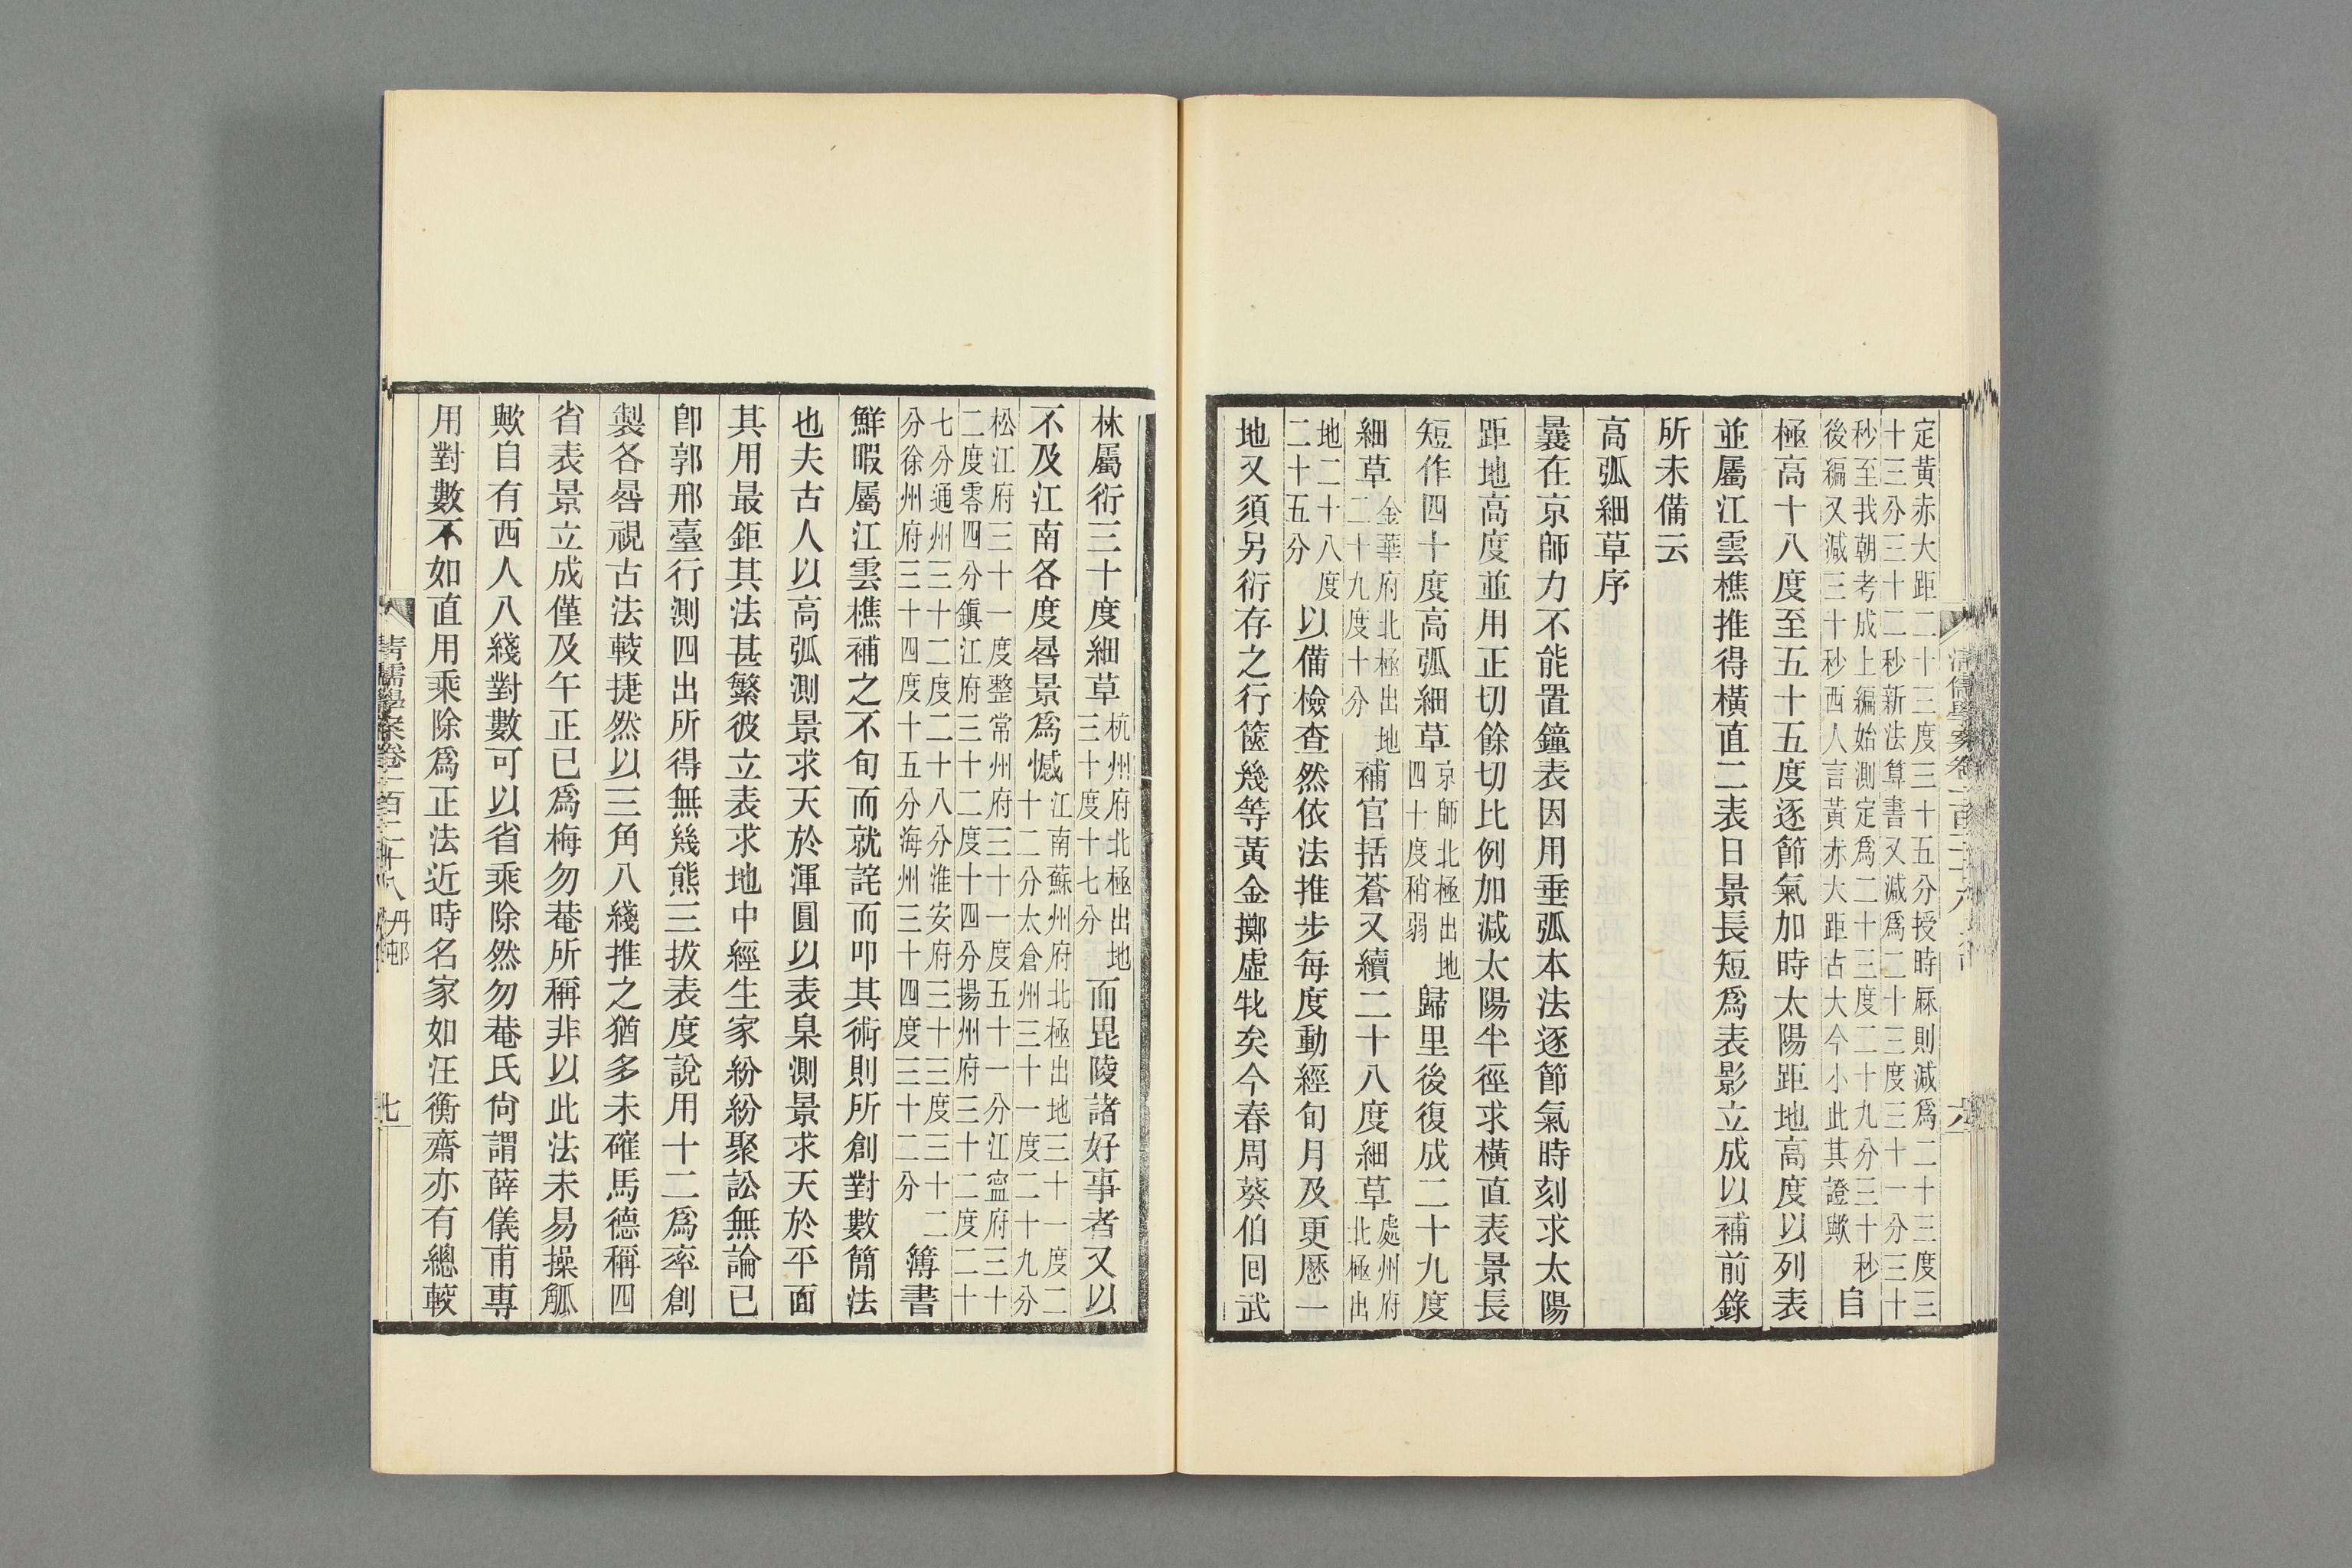 定黃赤大距二十三度三十五分授時厤則減爲二十三度三
十三分三十二秒新法算書又減爲二十三度三十一分三十
秒至我朝考成上編始測定爲二十三度二十九分三十秒
後編又減三十秒西人言黃赤大距古大今小此其證歟
自
極高十八度至五十五度逐節氣加時太陽距地高度以列表
並屬江雲樵推得橫直二表日景長短爲表影立成以補前錄
所未備云
高弧細草序
曩在京師力不能置鐘表因用垂弧本法逐節氣時刻求太陽
距地高度並用正切餘切比例加減太陽半徑求橫直表景長
短作四十度高弧細草
京師北極出地
四十度稍弱
歸里後復成二十九度
細草
金華府北極出地
二十九度十分
補官括蒼又續二十八度細草
處州府
北極出
地二十八度
二十五分
以備檢查然依法推步每度動經旬月及更厯一
地又須另衍存之行篋幾等黃金擲虛牝矣今春周葵伯囘武
林屬衍三十度細草
杭州府北極出地
三十度十七分
而毘陵諸好事者又以
不及江南各度晷景爲憾
江南蘇州府北極出地三十一度二
十二分太倉州三十一度二十九分
松江府三十一度整常州府三十一度五十一分江寍府三十
二度零四分鎭江府三十二度十四分揚州府三十二度二十
七分通州三十二度二十八分淮安府三十三度三十二
分徐州府三十四度十五分海州三十四度三十二分
簿書
鮮暇屬江雲樵補之不旬而就詫而叩其術則所創對數簡法
也夫古人以高弧測景求天於渾圓以表臬測景求天於平面
其用最鉅其法甚繁彼立表求地中經生家紛紛聚訟無論已
卽郭邢臺行測四出所得無幾熊三拔表度說用十二爲率創
製各晷視古法較捷然以三角八綫推之猶多未確馬德稱四
省表景立成僅及午正已爲梅勿菴所稱非以此法未易操觚
歟自有西人八綫對數可以省乘除然勿菴氏尙謂薛儀甫專
用對數不如直用乘除爲正法近時名家如汪衡齋亦有總較
清儒學案卷一百二十八
七